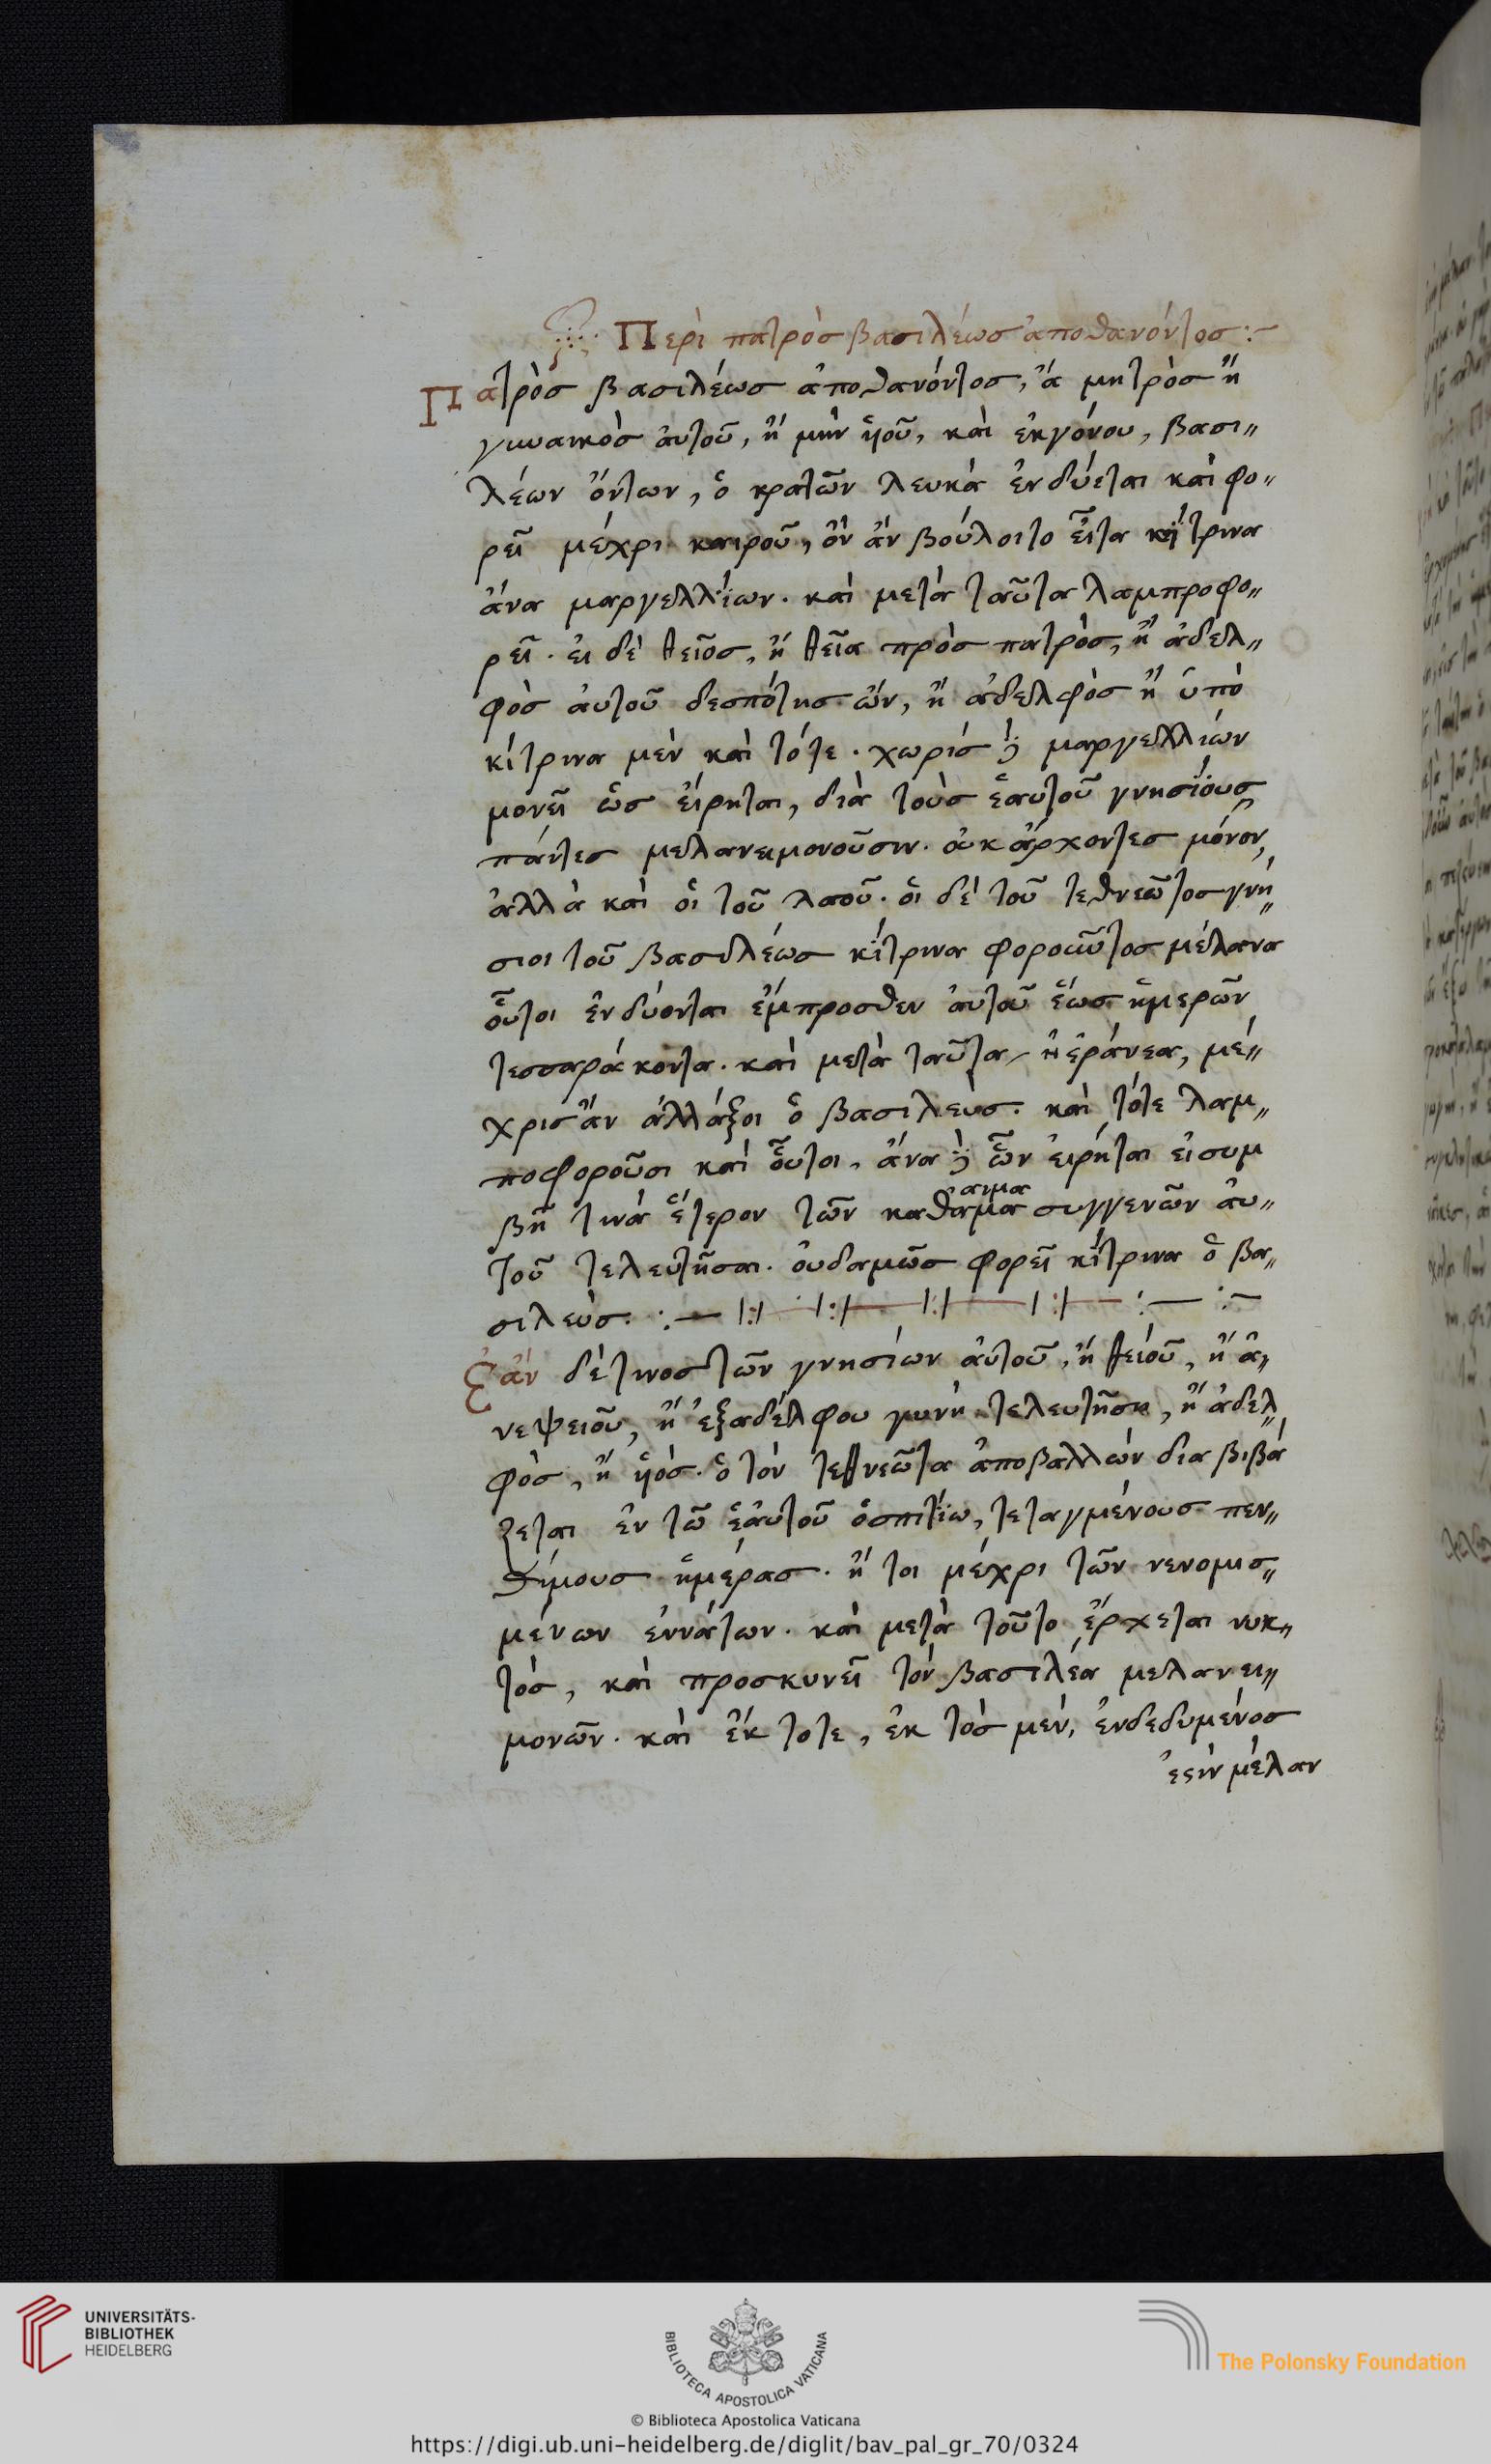 Περὶ πατρὸς βασιλέως ἀποθανόντος :~
Πατρὸς βασιλέως ἀποθανόντος, ἢ μητρὸς ἢ
γυναικὸς ἀυτοῦ, ἢ μὴν ὑοῦ, καὶ ἐκγόνου, βασι〃
λέων ὄντων, ὁ κρατῶν λευκὰ ἐνδύεται καὶ φο〃
ρεῖ μέχρι καιροῦ, ὃν ἂν βούλοιτο εἶτα κίτρινα
ἄνα μαργελλίων. καὶ μετὰ ταῦτα λαμπροφο〃
ρεῖ. ἐι δὲ θεῖος, ἢ θεῖα πρὸς πατρὸς, ἢ ἀδελ〃
φὸς ἀυτοῦ δεσπότης ὢν, ἢ ἀδελφὸς ἢ ὑπὸ
κίτρινα μὲν καὶ τότε. χωρὶς μαργελλιών
μονεῖ ὡς ἐίρηται, διὰ τοὺς ἑαυτοῦ γνησίους
πάντες μελανειμονοῦσιν. οὐκ ἄρχοντες μόνον,
ἀλλὰ καὶ οἱ τοῦ λαοῦ. οἱ δὲ τοῦ τεθνεῶτος γνή〃
σιοι τοῦ βασιλέως κίτρινα φοροῦντος μέλανα
οὗτοι ἐνδύονται ἔμπροσθεν ἀυτοῦ ἕως ἡμερῶν
τεσσαράκοντα. καὶ μετὰ ταῦτα ἠεράνεα, μέ〃
χρις ἂν ἀλλάξοι ὁ βασιλεὺς. καὶ τότε λαμ〃
ποφοροῦσι καὶ οὗτοι. ἄνα ὧν ἐιρήται ἐι συμ
βῆ τινὰ ἕτερον τῶν καθᾶμα αιμα συγγενῶν ἀυ〃
τοῦ τελευτῆσαι. ὀυδαμῶς φορεῖ κίτρινα ὁ βα〃
σιλεὺς. :— |:| |:| |:| |:| :— :~
Ἐὰν δὲ τινος τῶν γνησίων ἀυτοῦ, ἢ θειοῦ, ἢ ἀ〃
νεψειοῦ, ἢ ἐξαδέλφου γυνὴ τελευτῆση, ἢ ἀδελ〃
φὸς, ἢ ὑὸς. ὁ τὸν τεθνεῶτα ἀποβαλλὼν διαβιβά
ζεται ἐν τῶ ἑαυτοῦ ὁσπιτίω, τεταγμένους πεν〃
θίμους ἡμέρας. ἤ τοι μέχρι τῶν νενομισ〃
μένων ἐννάτων. καὶ μετὰ τοῦτο ἔρχεται νυκ〃
τὸς, καὶ προσκυνεῖ τὸν βασιλέα μελανει〃
μονῶν. καὶ ἔκ τοτε, ἐκ τὸς μὲν, ἐνδεδυμένος
ἐςιν μέλαν
UNIVERSITÄTS-
BIBLIOTHEK
HEIDELBERG
BIBLIOTECA APOSTOLICA VATICANA
The Polonsky Foundation
© Biblioteca Apostolica Vaticana
https://digi.ub.uni-heidelberg.de/diglit/bav_pal_gr_70/0324